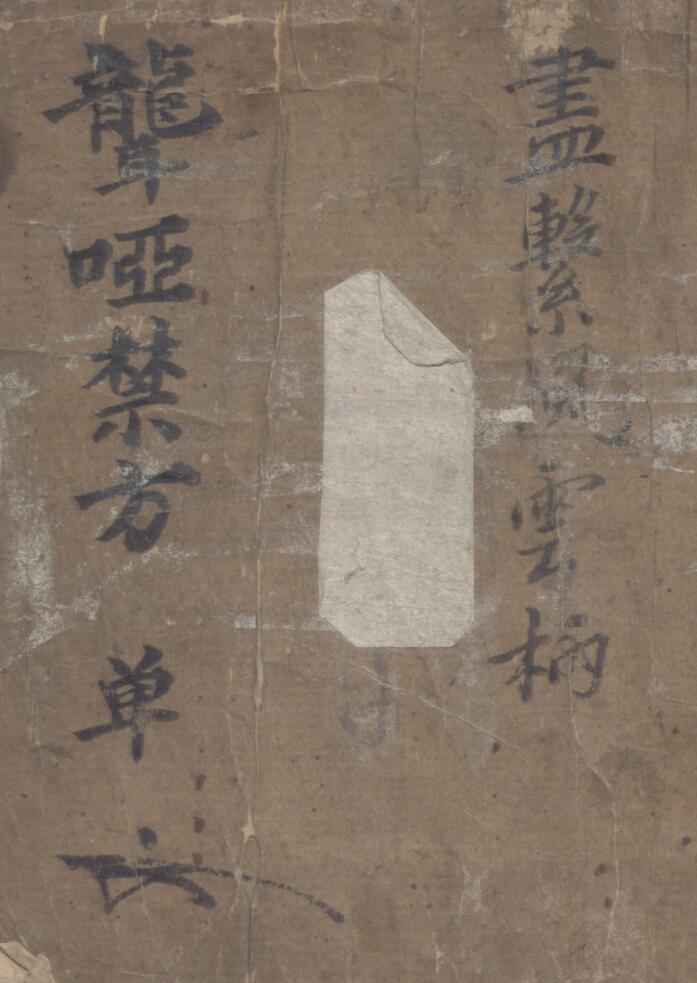 盡繫風雲柄
聾啞禁方 单